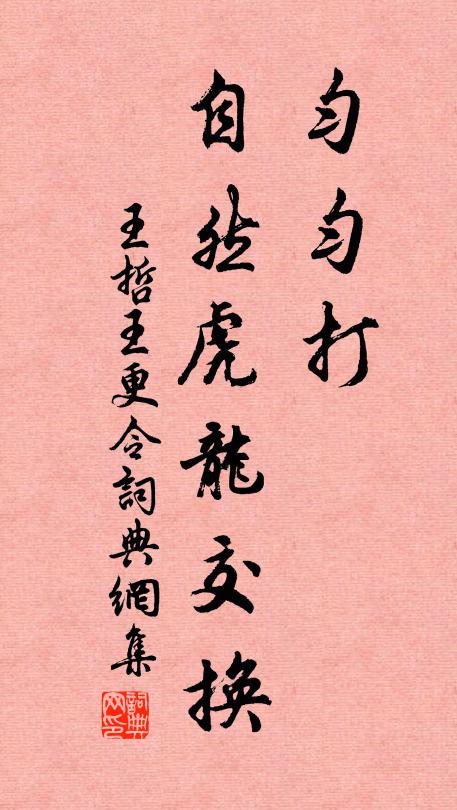 匀匀打
自然虎龍交換
王哲王更令詞典網集
詞典
网印